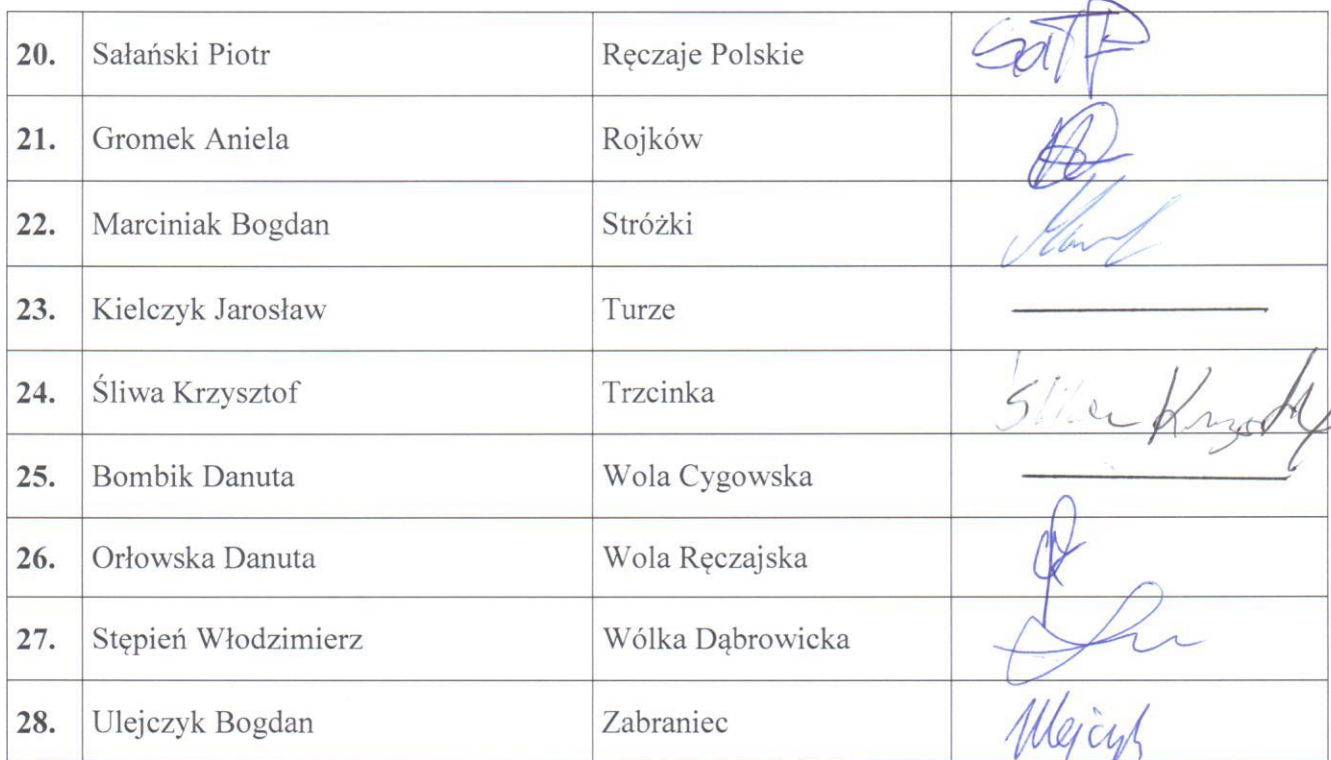 20. Sałański Piotr Ręczaje Polskie
21. Gromek Aniela Rojków
22. Marciniak Bogdan Stróżki
23. Kielczyk Jarosław Turze
24. Śliwa Krzysztof Trzcinka
25. Bombik Danuta Wola Cygowska
26. Orłowska Danuta Wola Ręczajska
27. Stępień Włodzimierz Wólka Dąbrowicka
28. Ulejczyk Bogdan Zabraniec